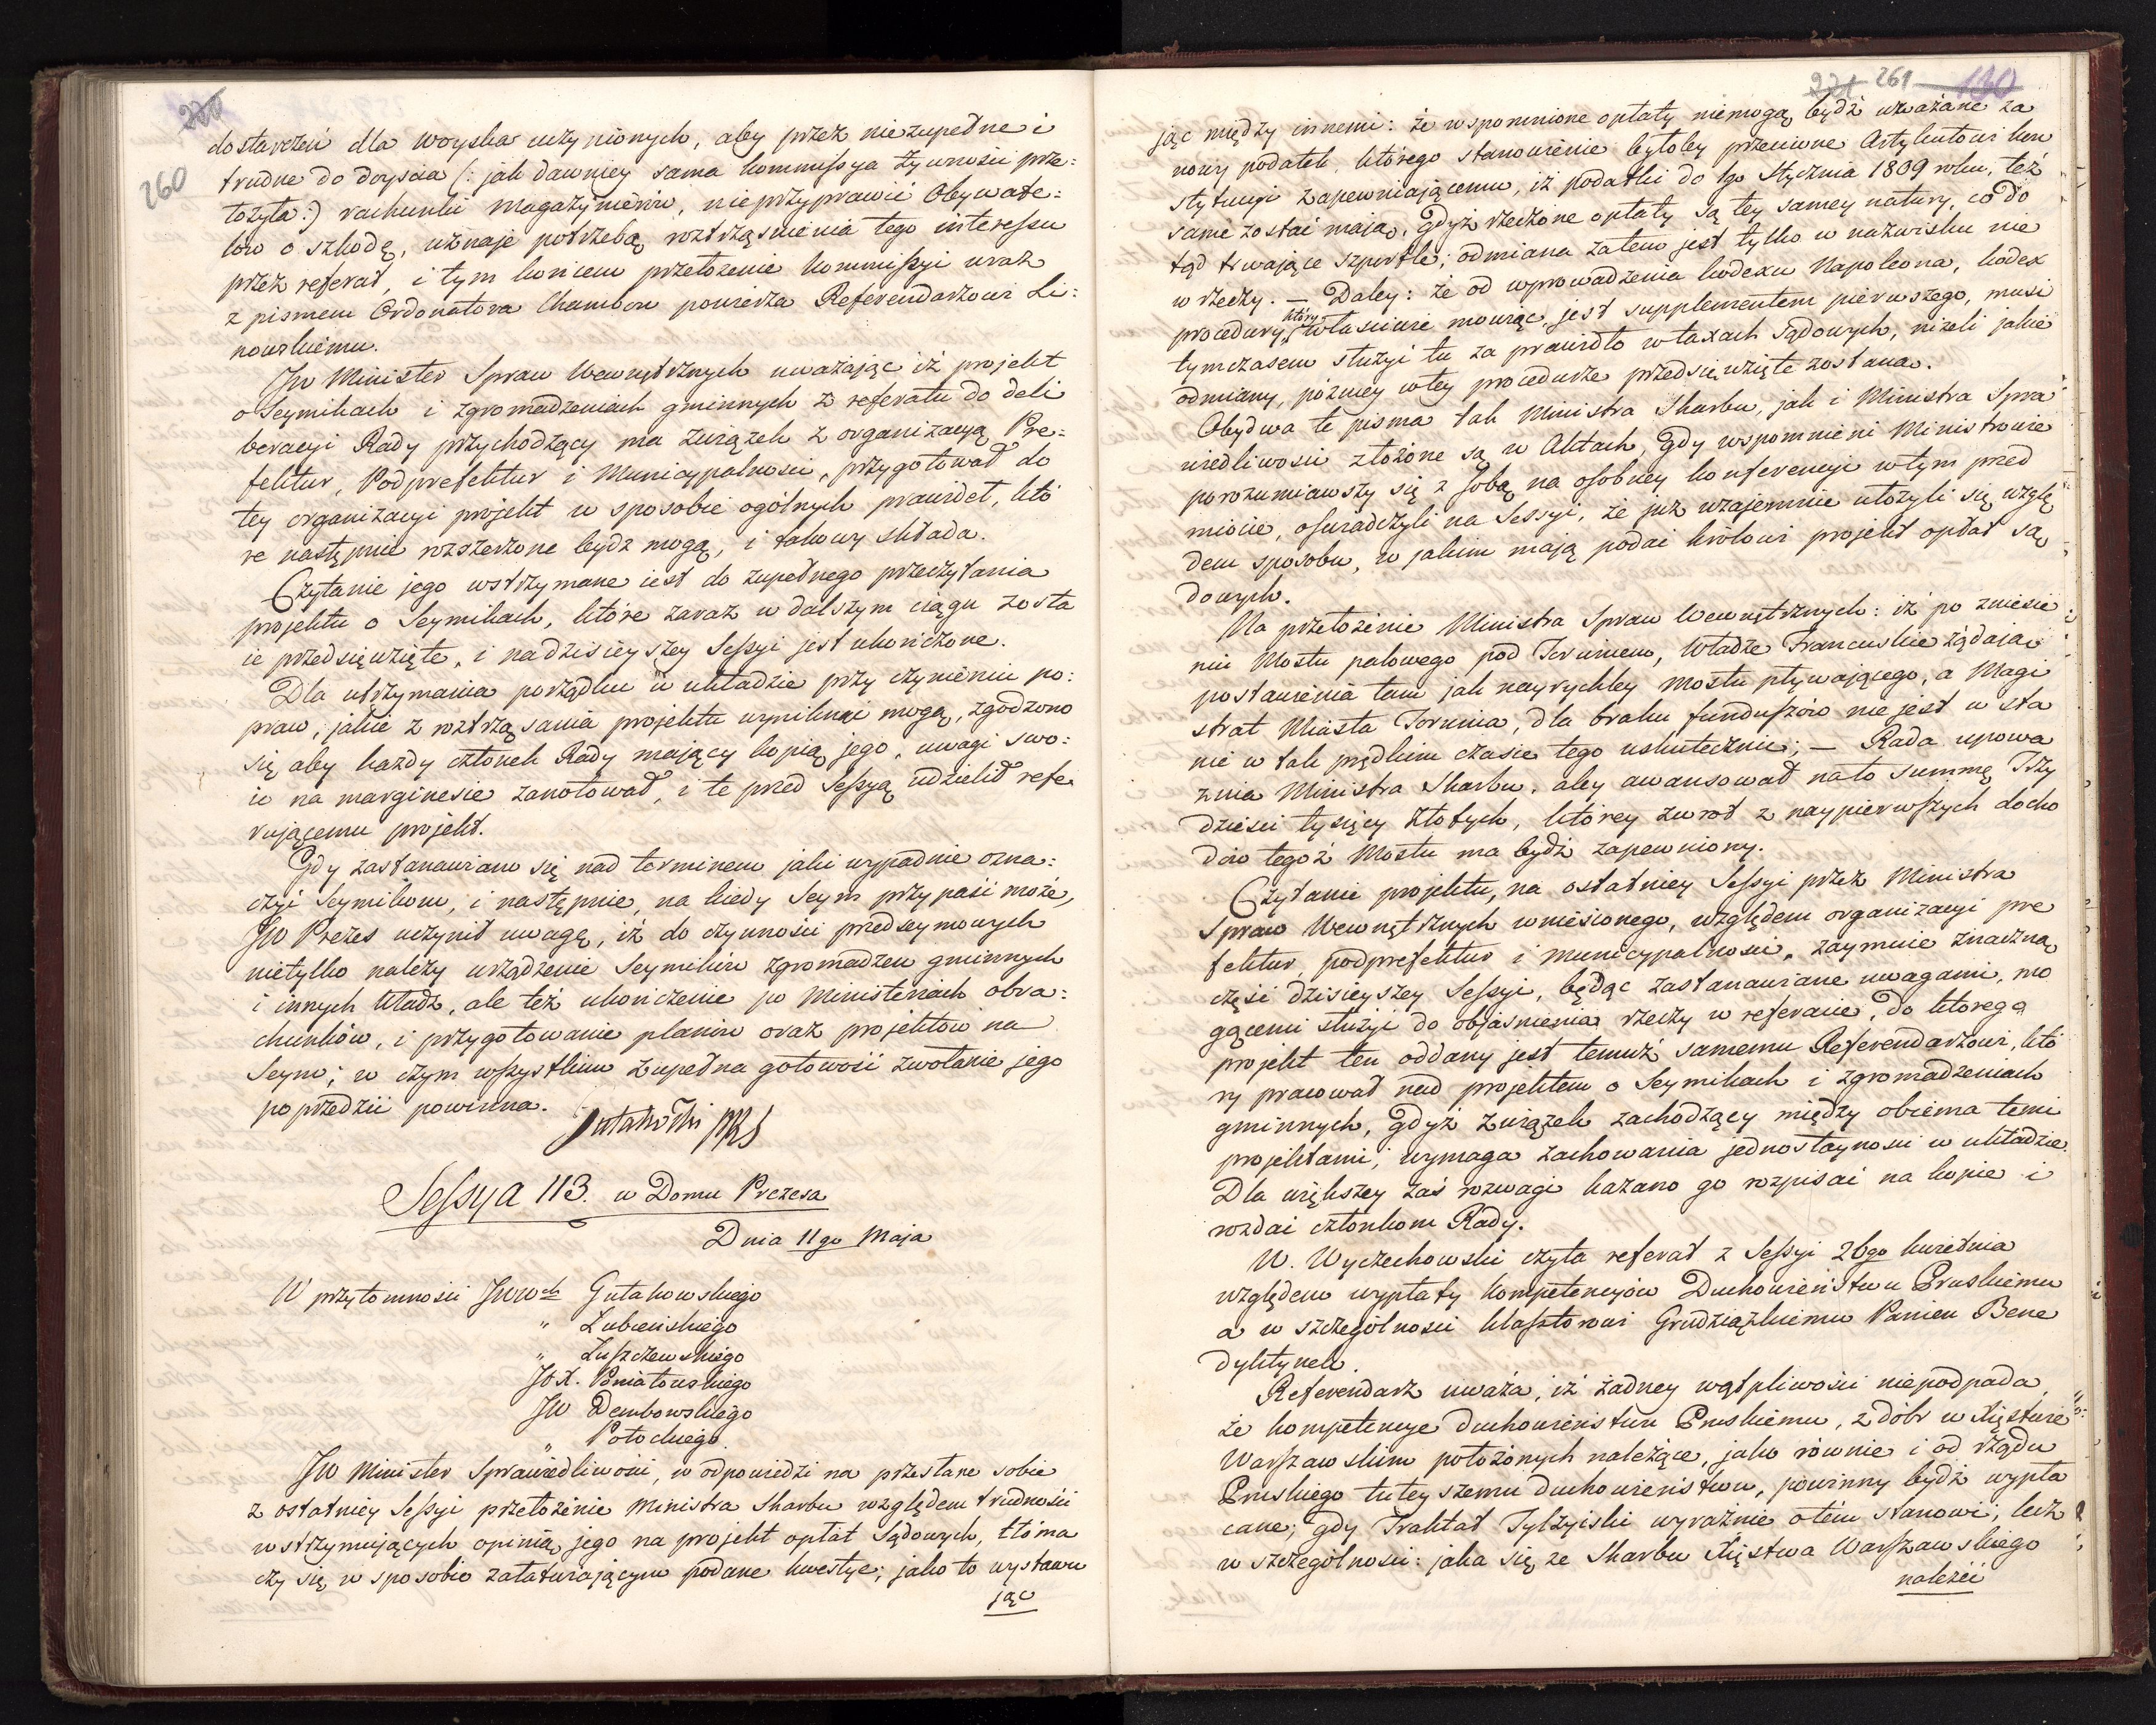 220
260
dostarczeń dla woyska uczynionych, aby przez niezupełne i
trudne do doyścia (: jak dawniey sama kommissya żywności prze-
łożyła :) rachunki magazynierów, nieprzyprawić Obywate-
lów o szkodę, uznaje potrzebą roztrząśnienia tego interessu
przez referat, i tym końcem przełożenie Kommissyi wraz
z pismem Ordonatora Chambon powierza Referendarzowi Li-
nowskiemu.
JW Minister Spraw Wewnętrznych uważając iż projekt
o Seymikach i zgromadzeniach gminnych z referatu do deli
beracyi Rady przychodzący ma związek z organizacyą Pre-
fektur, Podprefektur i Municypalności, przygotował do
tey organizacyi projekt w sposobie ogólnych prawideł, któ
re następnie rozszerzone bydź mogą, i takowy składa.
Czytanie jego wstrzymane iest do zupełnego przeczytania
projektu o Seymikach, które zaraz w dalszym ciągu zosta
ie przedsięwzięte, i na dzisieyszey Sessyi jest ukończone.
Dla utrzymania porządku w układzie przy czynieniu po-
praw, jakie z roztrząsania projektu wyniknąć mogą, zgodzono
się aby każdy członek Rady mający kopią jego, uwagi swo-
ie na marginesie zanotował, i te przed Sessyą udzielił refe
rującemu projekt.
Gdy zastanawiano się nad terminem jaki wypadnie ozna-
czyć Seymikom, i następnie, na kiedy Seym przypaść może,
JW Prezes uczynił uwagę, iż do czynności przedseymowych
nietylko należy urządzenie Seymików zgromadzeń gminnych
i innych Władz, ale też ukończenie po Ministeriach obra-
chunków, i przygotowanie planów oraz projektów na
Seym; w czym wszystkim zupełna gotowość zwołanie jego
poprzedzić powinna.
Gutakowski PRS
Sessya 113. w Domu Prezesa
Dnia 11go Maja
W przytomności JWWch Gutakowskiego
" Łubieńskiego
" Łuszczewskiego
JOX. Poniatowskiego
JW Dembowskiego
" Potockiego.
JW Minister Sprawiedliwości, w odpowiedzi na przesłane sobie
z ostatniey Sessyi przełożenie Ministra Skarbu względem trudności
wstrzymujących opinią jego na projekt opłat Sądowych, tłóma
czy się w sposobie załatwiającym podane kwestye; jako to wystawu
jąc
221 261 130
jąc między innemi: że wspomnione opłaty niemogą bydź uważane za
nowy podatek, którego stanowienie byłoby przeciwne Artykułowi kon
stytucyi zapewniającemu, iż podatki do 1go Stycznia 1809 roku, też
same zostać mają, gdyż rzeczone opłaty są tey samey natury, co do
tąd trwające szportle; odmiana zatem jest tylko w nazwisku nie
w rzeczy. — Daley: że od wprowadzenia kodexu Napoleona, kodex
procedury, który właściwie mówiąc jest supplementem pierwszego, musi
tymczasem służyć tu za prawidło w taxach sądowych, niżeli jakie
odmiany, późniey w tey procedurze przedsięwzięte zostaną.
Obydwa te pisma tak Ministra Skarbu, jak i Ministra Spra
wiedliwości złożone są w Aktach, gdy wspomnieni Ministrowie
porozumiawszy się z sobą na osobney konferencyi w tym przed
miocie, oświadczyli na Sessyi, że już wzajemnie ułożyli się wzglę
dem sposobu, w jakim mają podać królowi projekt opłat są
dowych.
Na przełożenie Ministra Spraw Wewnętrznych: iż po zniesie
niu Mostu palowego pod Toruniem, Władze Francuskie żądają
postawienia tam jak nayrychley mostu pływającego, a Magi
strat Miasta Torunia, dla braku funduszów nie jest w sta
nie w tak prędkim czasie tego uskutecznić; — Rada upowa
żnia Ministra Skarbu, aby awansował na to Summę Trzy
dzieści tysięcy złotych, którey zwrot z naypierwszych docho
dów tegoż Mostu ma bydź zapewniony.
Czytanie projektu, na ostatniey Sessyi przez Ministra
Spraw Wewnętrznych wniesionego, względem organizacyi pre
fektur, podprefektur i municypalności, zaymuie znaczną
część dzisieyszey Sessyi, będąc zastanawiane uwagami, mo
gącemi służyć do objaśnienia rzeczy w referacie, do którego
projekt ten oddany jest temuż samemu Referendarzowi, któ
ry pracował nad projektem o Seymikach i zgromadzeniach
gminnych, gdyż związek zachodzący między obiema temi
projektami, wymaga zachowania jednostayności w układzie.
Dla większey zaś rozwagi kazano go rozpisać na kopie i
rozdać członkom Rady.
W. Wyczechowski czyta referat z Sessyi 26go kwietnia
względem wypłaty kompetencyów Duchowieństwu Pruskiemu
a w szczególności klasztorowi Grudziązkiemu Panien Bene
dyktynek.
Referendarz uważa, iż żadney wątpliwości niepodpada,
że kompetencye duchowieństwu Pruskiemu, z dóbr w Xięstwie
Warszawskim położonych należące, jako równie i od rządu
Pruskiego tuteyszemu duchowieństwu, powinny bydź wypła
cane; gdy Traktat Tylżyński wyraźnie o tém stanowi; lecz
w szczególności: jaka się ze Skarbu Xięstwa Warszawskiego
należeć